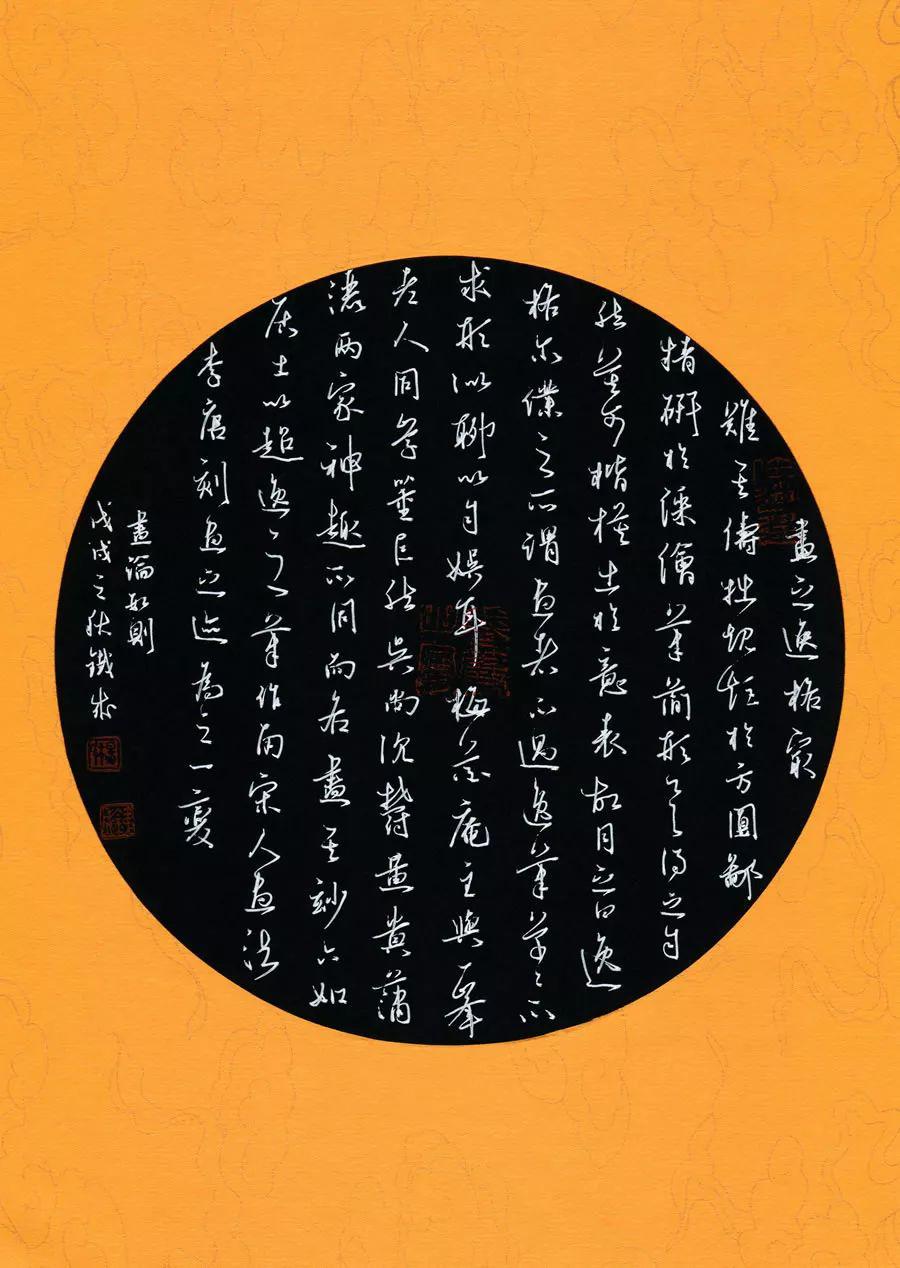 畫之逸格最
難其儔拙規矩於方圓鄙
精研於深繪筆簡形具得之自
然莫可楷模出於意表故目之曰逸
格尔僕之所謂畫者不過逸筆草草不
求形似聊以自娱耳梅花庵主與一峯
老人同學董巨然吴尚沉鬱黃貴蕭
灑兩家神趣不同而各盡其妙六如
居士以超逸之筆作南宋人畫法
李唐刻畫之迹為之一變
畫論數則
戊戌之秋鐵成